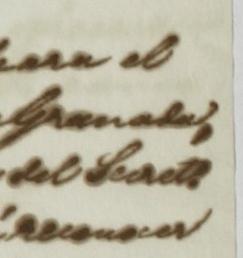 para el
Granada,
del Secret.º
reconocer